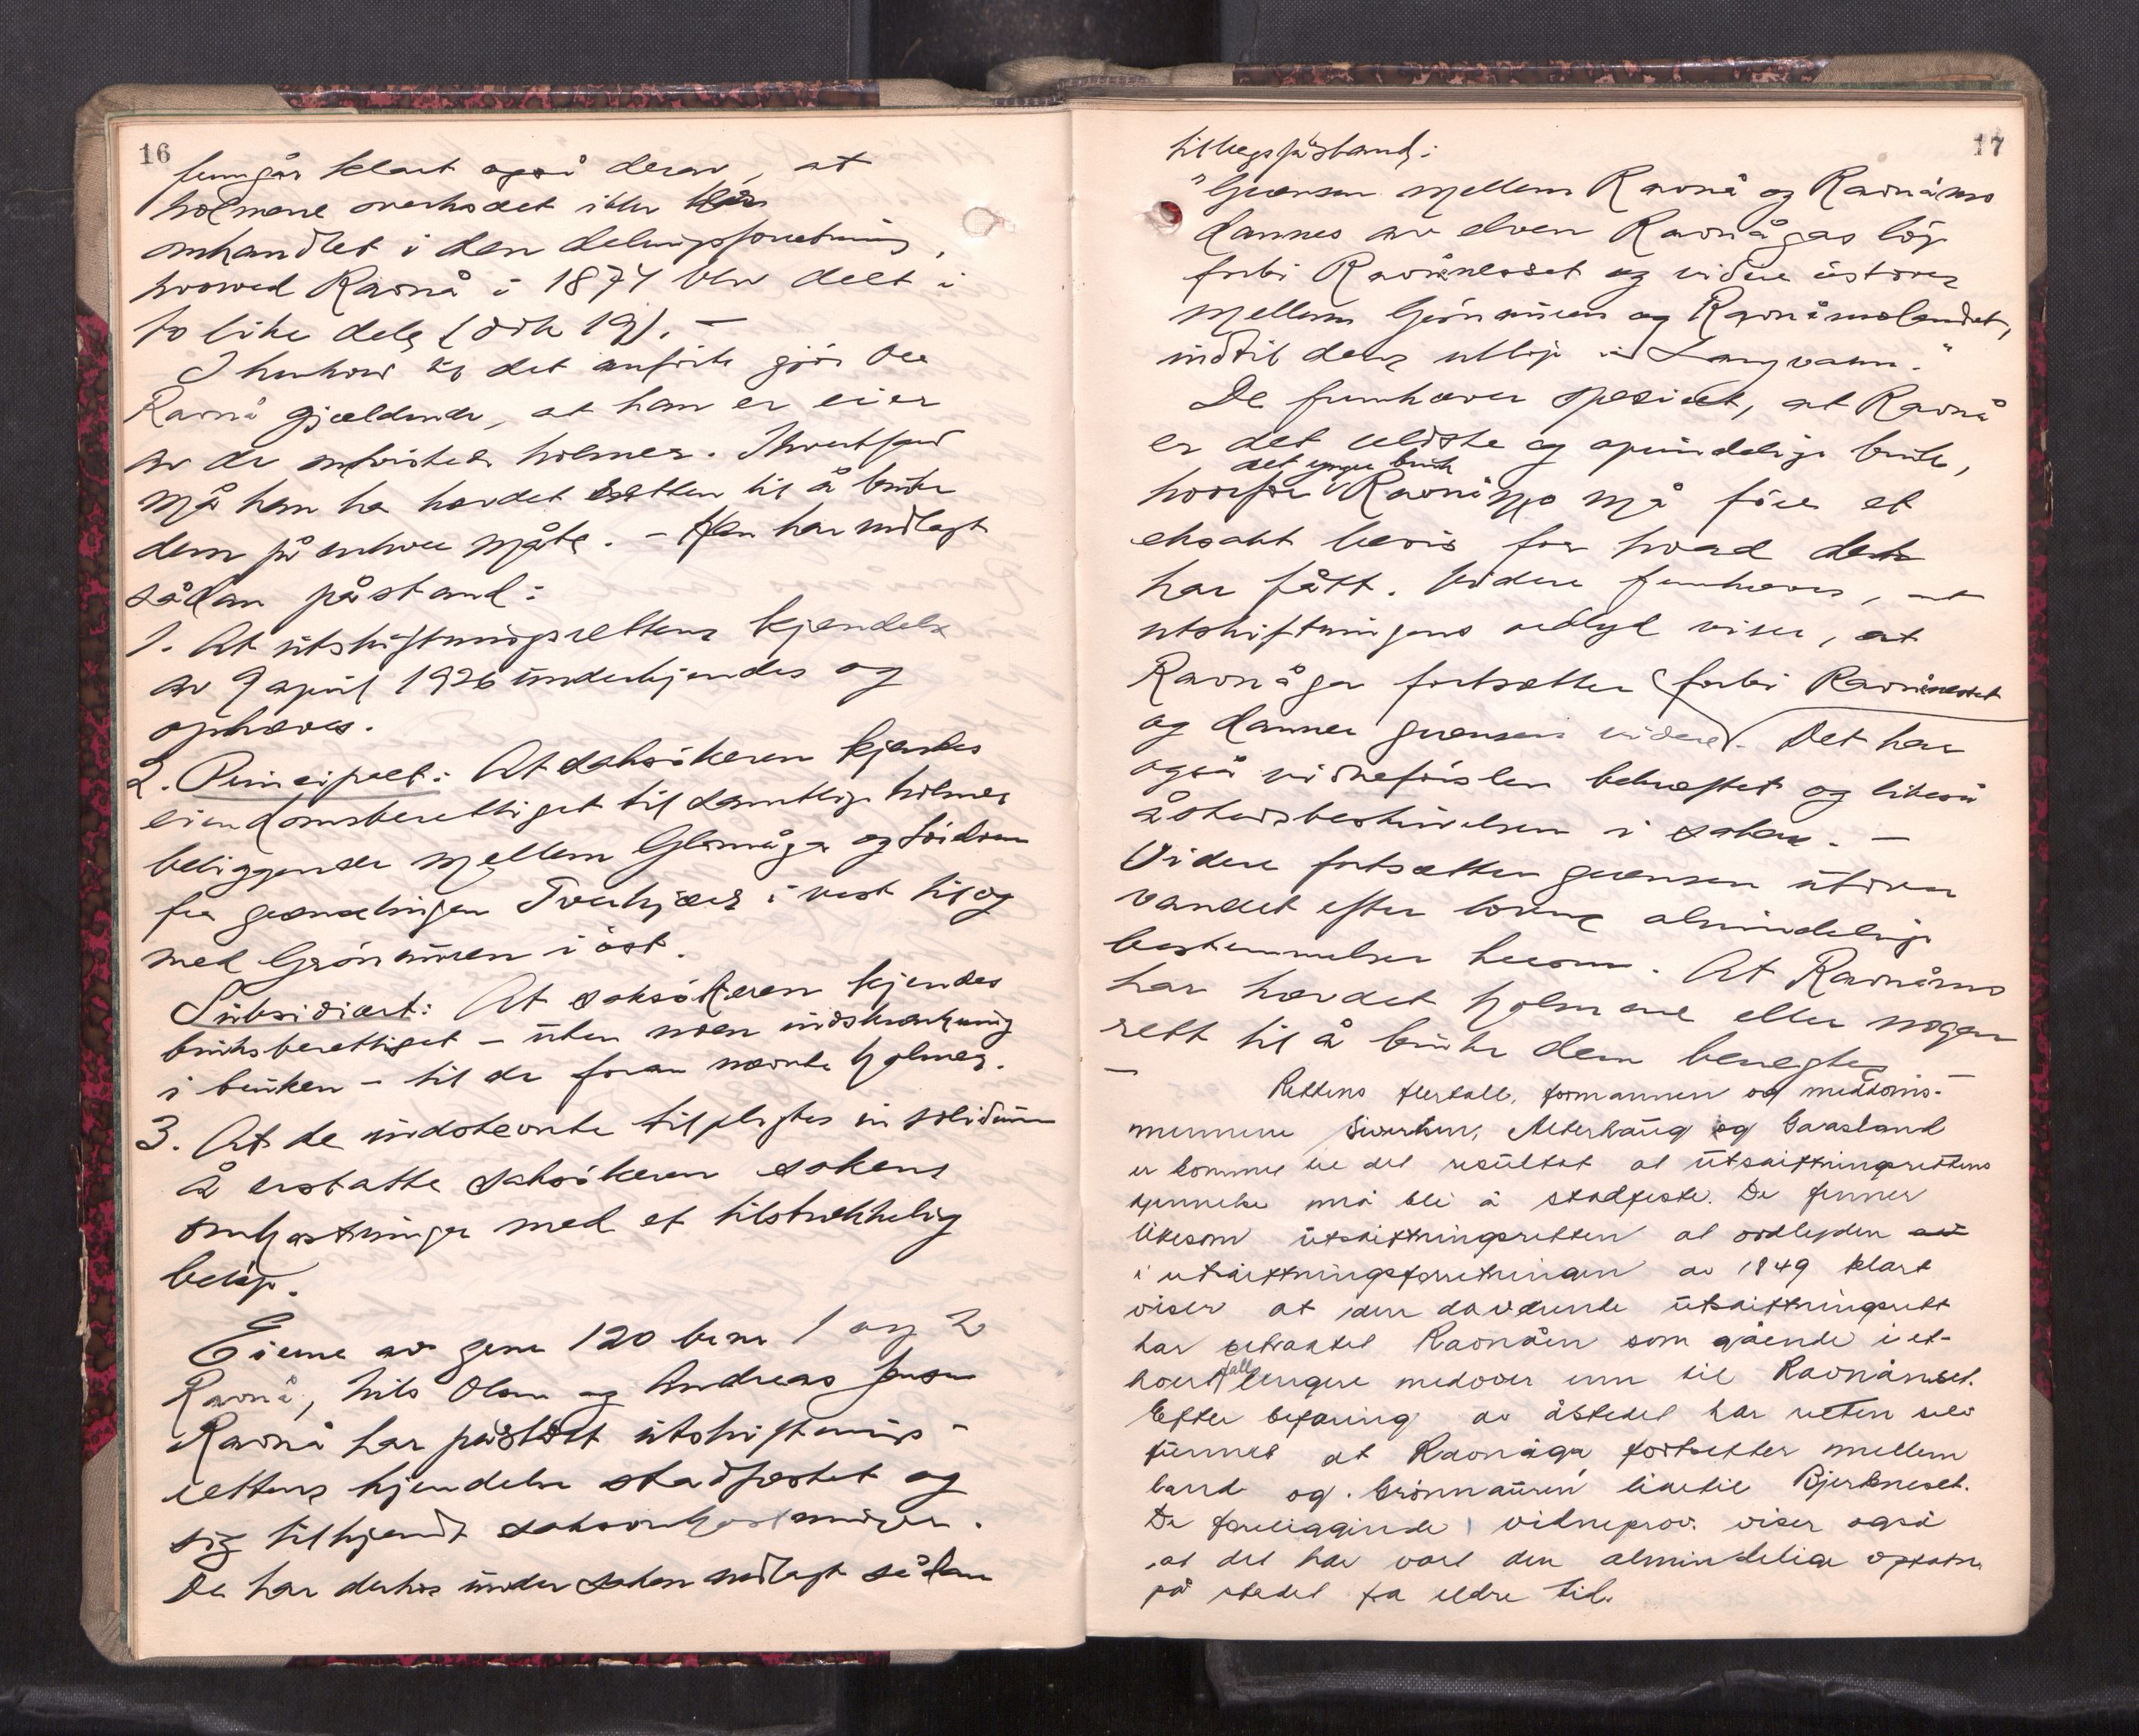 16
fremgår klart også derav, at
holmene overhodet ikke blev
omhandlet i den delingsforretning,
hvorved Ravnå i 1874 blev delt i
to like dele (dok 19). –
I henhold til det anførte gjør Ole
Ravnå gjældende, at han er eier
av de omtvistede holmer. I hvert fald
må han ha hævdet retten til å bruke
dem på enhver måte. – Han har nedlagt
sådan påstand:
1. At utskiftningsrettens kjendelse
av 9 april 1926 underkjendes og
ophæves.
2. Principalt: At saksøkeren kjendes
eiendomsberettiget til samtlige holmer
beliggende mellem Glomåga og
fra grænselinjen Tverkjær i vest til og
med Grønauren i øst.
Subsidiært: At saksøkeren kjendes
bruksberettiget – uten noen indskrænkning
i bruken – til de foran nævnte holmer.
3. At de indstevnte tilpligtes in solidum
å erstatte saksøkeren sakens
omkostninger med et tilstrækkelig
beløp.
Eierne av gnr 120 bnr 1 og 2
Ravnå, Nils Olsen og Andreas Jensen
Ravnå har påstått utskiftnings-
rettens kjendelse stadfæstet og
sig tilkjendt saksomkostninger.
De har derhos under saken nedlagt sådan
17
tillegspåstand:
"Grænsen mellem Ravnå og Ravnåmo
dannes av elven Ravnågas løp
forbi Ravnåneset og videre østover
mellem Grønauren og Ravnåmolandet,
indtil dens utløp i Langvatn."
De fremhæver spesielt, at Ravnå
er det eldste og oprindelige bruk,
det yngre bruk
hvorfor Ravnåmo må føre et
eksakt bevis for hvad det
har fått. Videre fremhæves, at
utskiftningens ordlyd viser, at
Ravnåga fortsætter forbi Ravnåneset
og danner grænsen videre. Det har
også vidneførslen bekræftet og likeså
åstedsbeskrivelsen i saken. –
Videre fortsætter grænsen utover
vandet efter lovens almindelige
bestemmelser herom. At Ravnåmo
har hævdet holmene eller nogen
rett til å bruke dem benegtes. –
Rettens flertall, formannen og meddoms-
mennene Sivertsen, Alterhaug og Gaasland
er kommet til det resultat at utskiftningsrettens
kjennelse må bli å stadfeste. De finner
likesom utskiftningsretten at ordlyden
i utskiftningsforretningen av 1849 klart
viser at den daværende utskiftningsrett
har betraktet Ravnåen som gående i et-
hvert fall lengere nedover enn til Ravnåneset.
Efter befaring av åstedet har retten selv
funnet at Ravnåga fortsetter mellem
land og Grønnauren liketil Bjerkneset.
De foreliggende vidneprov viser også
at det har vært den almindelige opfatn.
på stedet fra eldre tid.